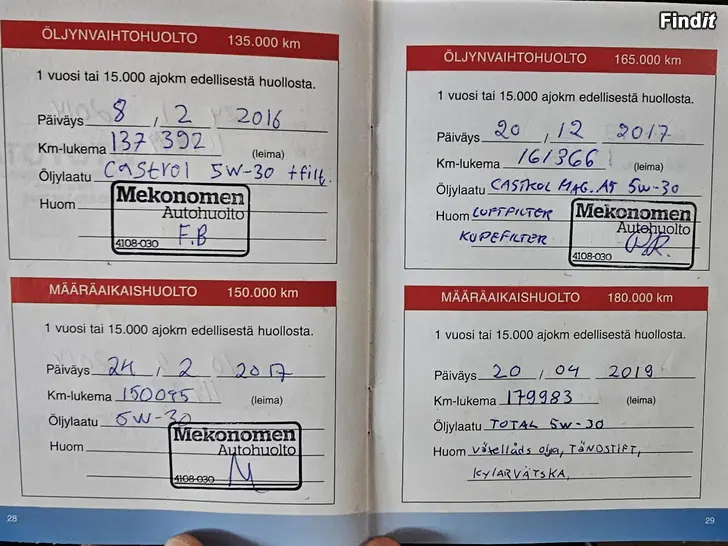 Findit
ÖLJYNVAIHTOHUOLTO 135.000 km
1 vuosi tai 15.000 ajokm edellisestä huollosta.
Päiväys 8 , 2 2016
Km-lukema 137 392 (leima)
Öljylaatu Castrol 5W-30 +filt.
Huom
Mekonomen
Autohuolto
F.B
4108-030
MÄÄRÄAIKAISHUOLTO 150.000 km
1 vuosi tai 15.000 ajokm edellisestä huollosta.
Päiväys 24 , 2 2017
Km-lukema 150095 (leima)
Öljylaatu 5W-30
Huom
Mekonomen
Autohuolto
4108-030
28
ÖLJYNVAIHTOHUOLTO 165.000 km
1 vuosi tai 15.000 ajokm edellisestä huollosta.
Päiväys 20 , 12 2017
Km-lukema 161366 (leima)
Öljylaatu CASTROL MAG. A5 5W-30
Huom LUFTFILTER
KUPEFILTER
Mekonomen
Autohuolto
4108-030
MÄÄRÄAIKAISHUOLTO 180.000 km
1 vuosi tai 15.000 ajokm edellisestä huollosta.
Päiväys 20 , 04 2019
Km-lukema 179983 (leima)
Öljylaatu TOTAL 5W-30
Huom växellåds olja, TÄNDSTIFT,
KYLARVÄTSKA,
29